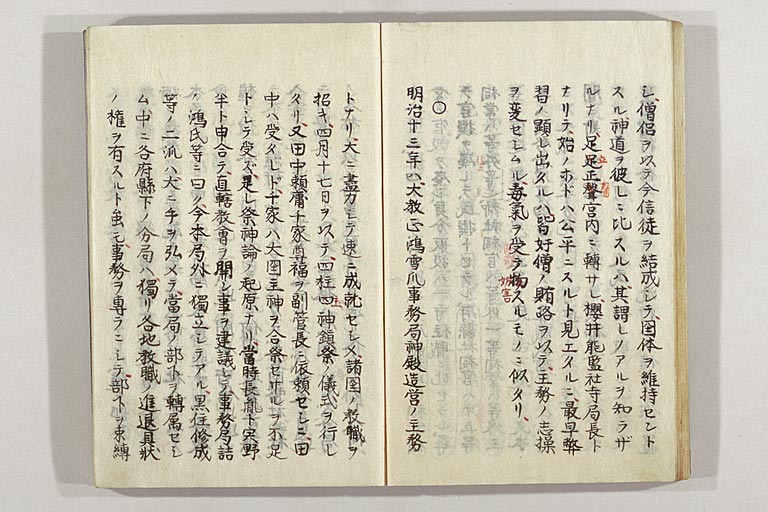 シ、僧侶ヲ以テ今信徒ヲ結成シテ、国体ヲ維持セント
スル神道ヲ彼レニ比スルハ、其謂レノアルヲ知ラザ
ルナリ、足立正聲宮内ニ轉サレ櫻井能監社寺局長ト
ナリテ、始ノホドハ公平ニスルト見エタルニ、最早弊
習ノ顕レ出タルハ、皆奸僧ノ賄賂ヲ以テ主務ノ志操
ヲ変セシムル毒氣ヲ受テ物スルモノニ似タリ、
妨害
〇
明治十三年ハ、大教正鴻雪爪事務局神殿造営ノ主務
トナリ、大ニ盡力シテ速ニ成就セシメ、諸国ノ教職ヲ
招キ、四月十七日ヲ以テ、四柱四神鎮祭ノ儀式ヲ行レ
タリ、又田中頼庸千家尊福ヲ副管長ニ依頼セシニ、田
中ハ受タレド、千家ハ大国主神ヲ合祭セサルヲ不足
トシテ受ズ、是レ祭神論ノ起原ナリ、當時長胤ト宍野
半ト申合テ、直轄教會ヲ開シ事ヲ建議シテ、事務局詰
ノ鴻氏等ニ曰ク、今本局外ニ獨立シテアル黒住修成
等ノ二派ハ、大ニ手ヲ弘メテ當局ノ部下ヲ轉属セシ
ム、中ニ各府縣下ノ分局ハ、獨リ各地教職ノ進退具状
ノ權ヲ有スルト雖モ、事務ヲ専ラニシテ部下ヲ束縛